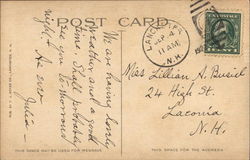 POST CARD
We are having lovely
weather and a good
time. Shall probably
see you to-morrow
night. As ever
Julia
LANCASTER
SEP 4
11 AM
N.H.
Miss Lillian A. Busiel
24 High St.
Laconia
N.H.
THIS SPACE MAY BE USED FOR MESSAGE
THIS SPACE FOR THE ADDRESS